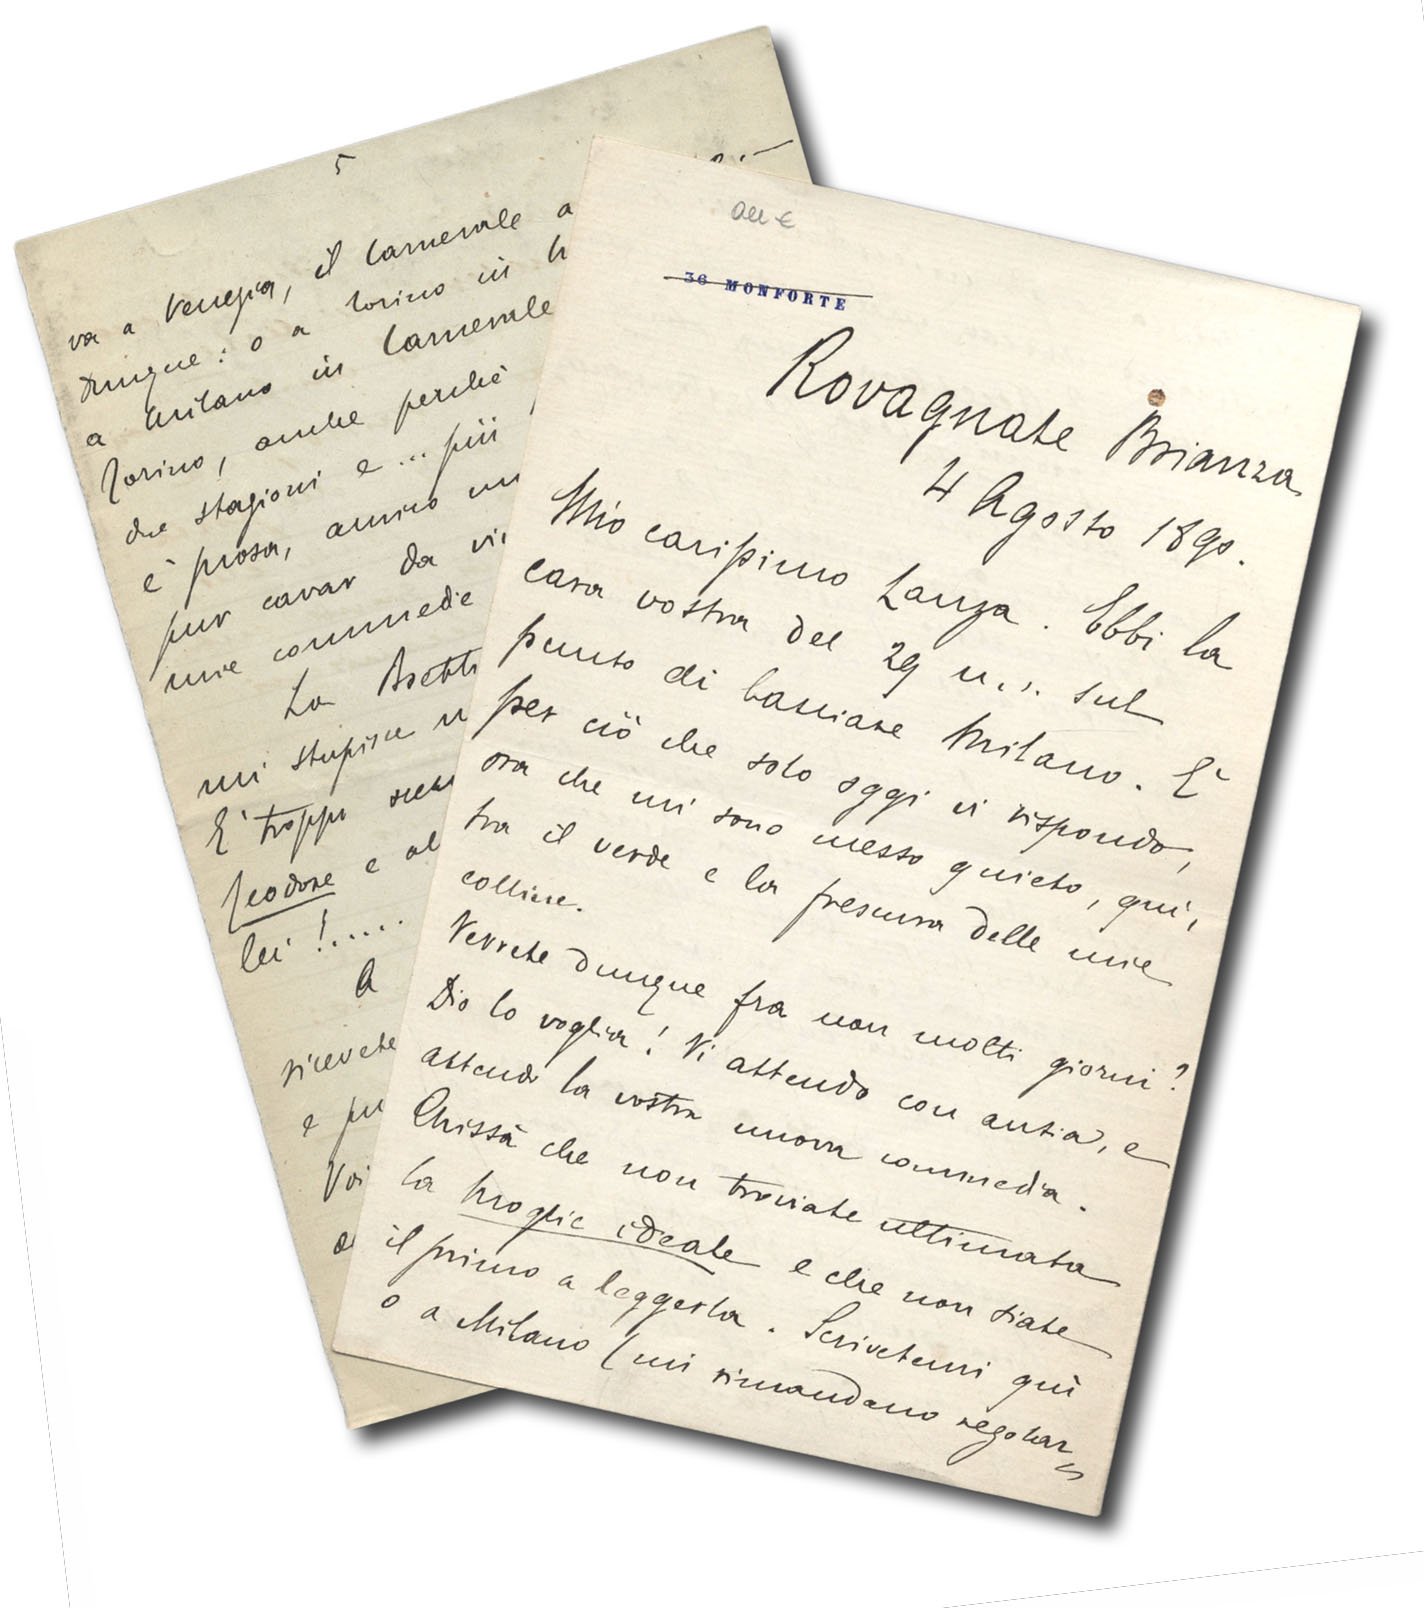 5
va a Venezia, il Carnevale a
Dunque: o a Torino in
a Milano in Carnevale
Torino, anche perchè
due stagioni e ... più
è prosa, amico
pur cavar da
mie commedie
La
mi stupisce
E' troppo
Teodora e al
lei !.....
A
ricevete
e
Voi
36 MONFORTE
Rovagnate Brianza
4 Agosto 1890.
Mio carissimo Lanza. Ebbi la
cara vostra del 29 u.s. sul
punto di lasciare Milano. E'
per ciò che solo oggi vi rispondo,
ora che mi sono messo quieto, qui,
tra il verde e la frescura delle mie
colline.
Verrete dunque fra non molti giorni?
Dio lo voglia! Vi attendo con ansia, e
attendo la vostra nuova commedia.
Chissà che non troviate ultimata
la Moglie ideale e che non siate
il primo a leggerla. Scrivetemi quì
o a Milano (mi rimandano regolar=